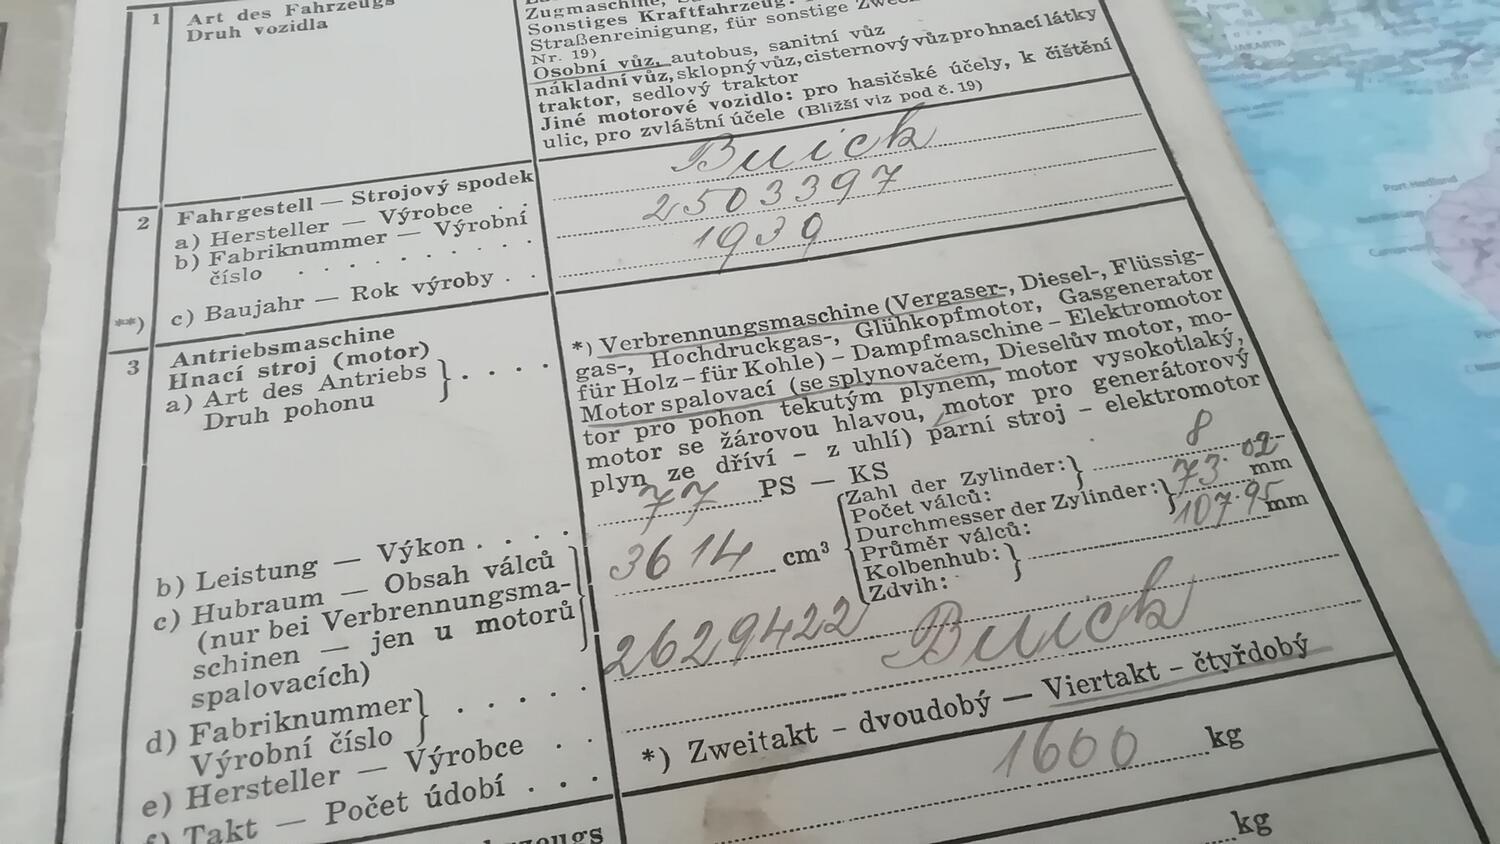 1 Art des Fahrzeugs
Druh vozidla
Zugmaschine,
Sonstiges Kraftfahrzeug:
Straßenreinigung, für sonstige
Nr. 19)
Osobní vůz, autobus, sanitní vůz
nákladní vůz, sklopný vůz, cisternový vůz pro hnací látky
traktor, sedlový traktor
Jiné motorové vozidlo: pro hasičské účely, k čištění
ulic, pro zvláštní účele (Bližší viz pod č. 19)
2 Fahrgestell — Strojový spodek
a) Hersteller — Výrobce . .
Buick
b) Fabriknummer — Výrobní
číslo . . . . . . . .
2503397
**) c) Baujahr — Rok výroby . .
1939
3 Antriebsmaschine
Hnací stroj (motor)
a) Art des Antriebs } . . . .
Druh pohonu
*) Verbrennungsmaschine (Vergaser-, Diesel-, Flüssig-
gas-, Hochdruckgas-, Glühkopfmotor, Gasgenerator
für Holz – für Kohle) – Dampfmaschine – Elektromotor
Motor spalovací (se splynovačem, Dieselův motor, mo-
tor pro pohon tekutým plynem, motor vysokotlaký,
motor se žárovou hlavou, motor pro generátorový
plyn ze dříví – z uhlí) parní stroj – elektromotor
b) Leistung — Výkon . . . .
77 PS — KS
c) Hubraum — Obsah válců
(nur bei Verbrennungsma-
schinen — jen u motorů
spalovacích)
3614 cm³
Zahl der Zylinder:} 8
Počet válců:
Durchmesser der Zylinder:} 73.02 mm
Průměr válců:
Kolbenhub:} 107.95 mm
Zdvih:
d) Fabriknummer} . . . . .
Výrobní číslo
2629422
e) Hersteller — Výrobce . .
Buick
f) Takt — Počet údobí . . .
*) Zweitakt – dvoudobý — Viertakt – čtyřdobý
1600 kg
kg